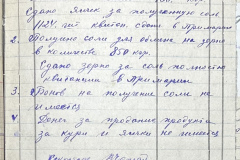 Сдано ячмен за полученную соль
1124 шт квитан. сдани в Примарии
2. Получено соли для обмена на зерно
в количестве 850 кгр.
Сдано зерно за соль полностью
квитанции в Примарии
3. Бонов на получение соли не
имеется
V Денег за проданние продукты
за кури и яйки не имеется